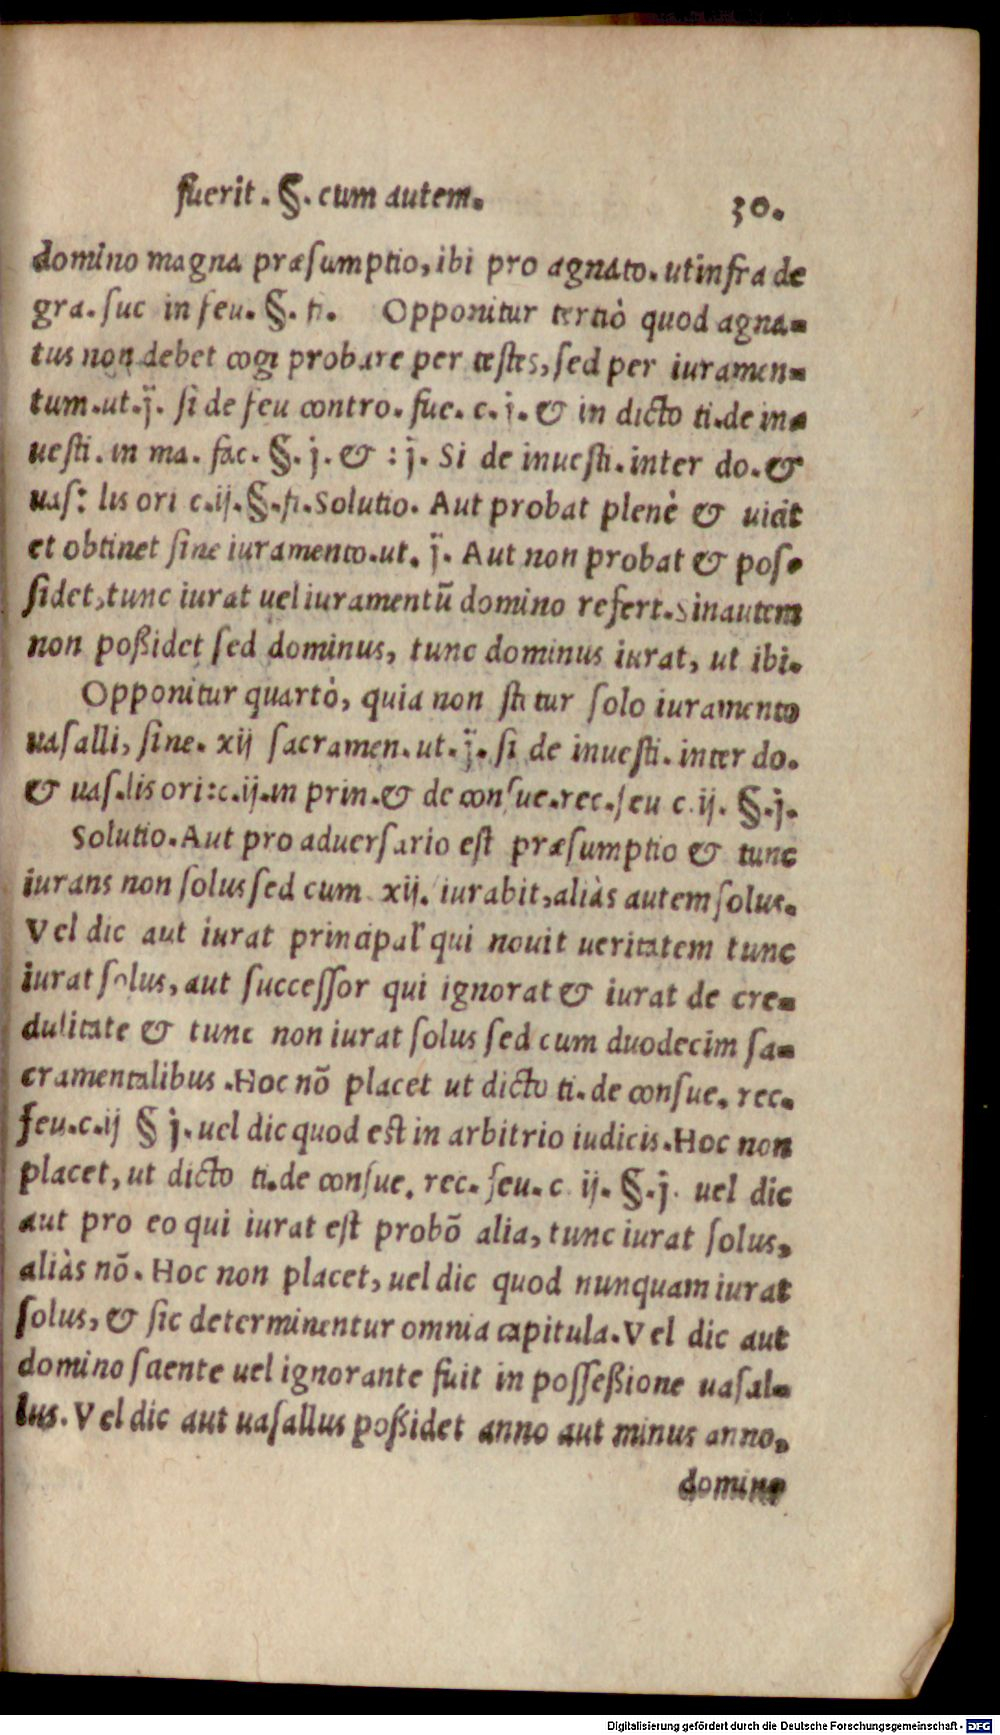 fuerit. §. cum autem. 30.
domino magna præsumptio, ibi pro agnato. ut infra de
gra. suc in feu. §. fi. Opponitur tertiò quod agna-
tus non debet cogi probare per testes, sed per iuramen-
tum. ut. j̈. si de feu contro. fue. c. i. & in dicto ti. de in-
uesti. in ma. fac. §. j. & : j̈. Si de inuesti. inter do. &
uas: lis ori c. ij. §. fi. Solutio. Aut probat plenè & uicit
et obtinet sine iuramento. ut. j̈. Aut non probat & pos-
sidet, tunc iurat uel iuramentū domino refert. Sin autem
non poßidet sed dominus, tunc dominus iurat, ut ibi.
Opponitur quartò, quia non sti tur solo iuramento
uasalli, sine. xij sacramen. ut. j̈. si de inuesti. inter do.
& uas. lis ori: c. ij. in prin. & de consue. rec. feu c. ij. §. j.
Solutio. Aut pro aduersario est præsumptio & tunc
iurans non solus sed cum xij. iurabit, aliàs autem solus.
Vel dic aut iurat principal' qui nouit ueritatem tunc
iurat solus, aut successor qui ignorat & iurat de cre-
dulitate & tunc non iurat solus sed cum duodecim sa-
cramentalibus. Hoc nō placet ut dicto ti. de consue. rec.
feu. c. ij § j. uel dic quod est in arbitrio iudicis. Hoc non
placet, ut dicto ti. de consue. rec. feu. c ij. §. j. uel dic
aut pro eo qui iurat est probō alia, tunc iurat solus,
aliàs nō. Hoc non placet, uel dic quod nunquam iurat
solus, & sic determinentur omnia capitula. Vel dic aut
domino sciente uel ignorante fuit in posseßione uasal-
lus. Vel dic aut uasallus poßidet anno aut minus anno,
domino
Digitalisierung gefördert durch die Deutsche Forschungsgemeinschaft - DFG